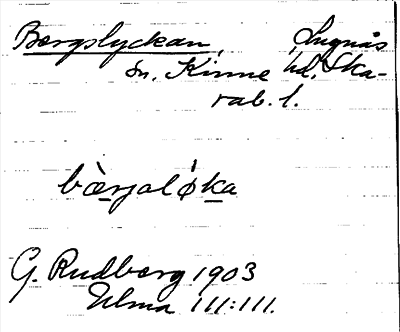 Bergslyckan, Lugnås
sn. Kinne hd. Ska-
rab. l.
bærjalø̀ka
G. Rudberg 1903
Ulma 111:111.